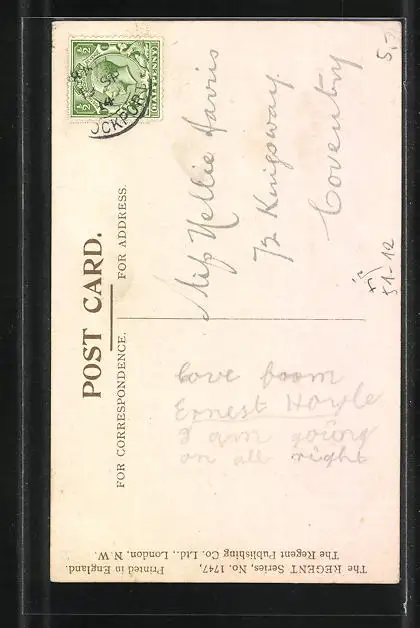 POST CARD.
FOR CORRESPONDENCE.
FOR ADDRESS.
½ ½
HALFPENNY
OCKPOR
14
Miss Nellie Harris
72 Kingsway
Coventry
love from
Ernest Hoyle
I am going
on all right
5.-
51-12
The REGENT Series, No. 1747,
The Regent Publishing Co. Ltd., London, N.W.
Printed in England.